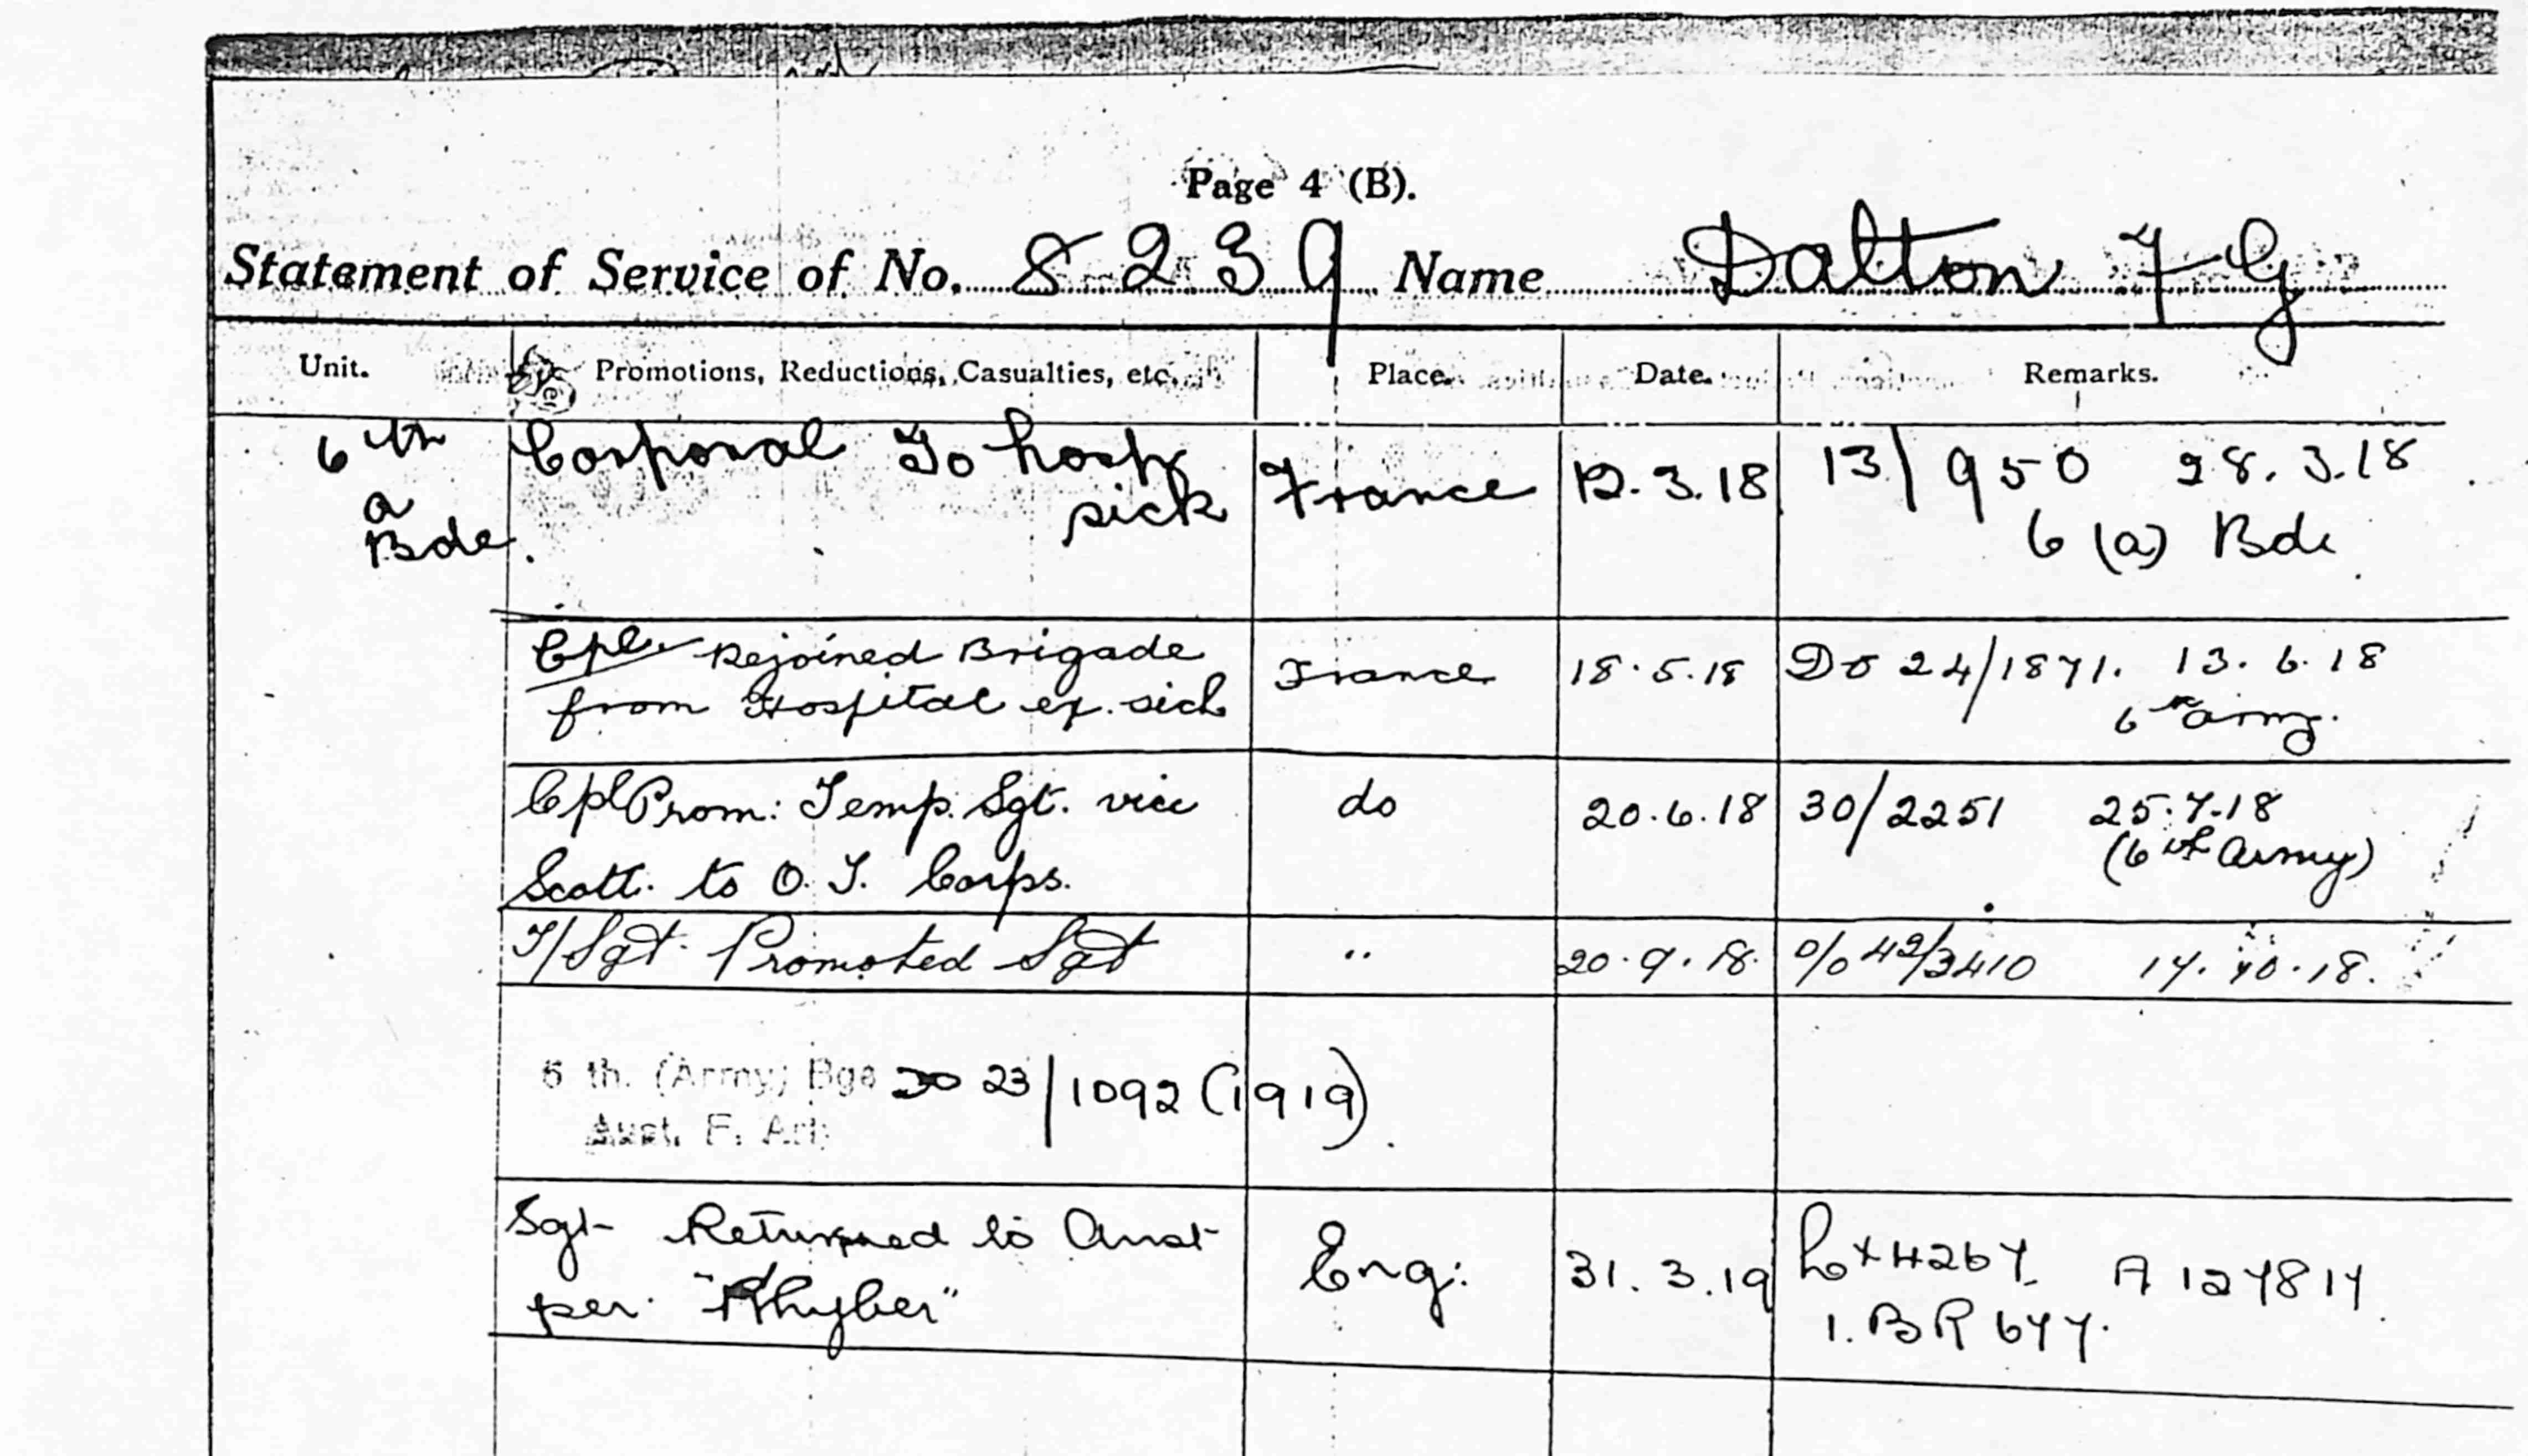 Page 4 (B).
Statement of Service of No. 8239 Name Dalton F G
Unit. Promotions, Reductions, Casualties, etc. Place. Date. Remarks.
6th Corporal To hosp France 12.3.18 13/950 28.3.18
a sick 6 (a) Bde
Bde.
Cpl. Rejoined Brigade France 18.5.18 DO 24/1871. 13.6.18
from Hospital ex. sick 6th army.
Cpl Prom: Temp. Sgt. vice do 20.6.18 30/2251 25.7.18
Scott. to O. T. Corps. (6th Army)
T/Sgt. Promoted Sgt " 20.9.18. D/O 42/3410 17.10.18.
6 th. (Army) Bge DO 23/1092 (1919).
Aust. F. Art.
Sgt Returned to Aust Eng: 31.3.19 4267 A 127817.
per. "Khyber" 1. BR 677.